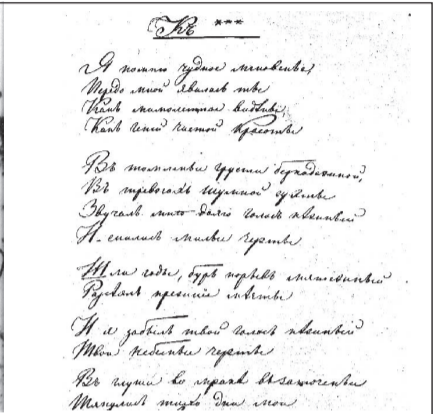 Къ ***
Я помню чудное мгновенье,
Передо мной явилась ты
Какъ мимолетное видѣнье
Какъ геній чистой красоты
Въ томленьи грусти безнадежной,
Въ тревогахъ шумной суеты
Звучалъ мнѣ долго голосъ нѣжный
И снились милые черты
Шли годы, бурь порывъ мятежный
прежніе мечты
И я забылъ твой голосъ нѣжный
Твои небесные черты
Въ глуши во мракѣ заточенья
Тянулись тихо дни мои